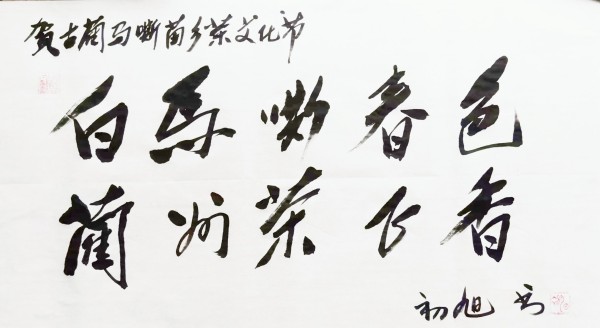 贺古蔺马嘶苗乡茶文化节
白马嘶春色
蔺州茶飞香
初旭书